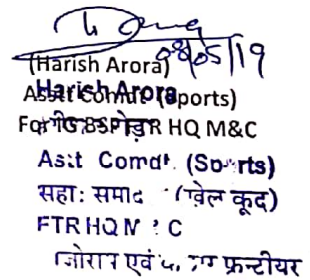 08/05/19
(Harish Arora)
Harish Arora
Asstt Comdt (Sports)
For IG BSF FTR HQ M&C
Asst Comdt. (Sports)
सहा: समाद (खेल कूद)
FTR HQ M C
एवं फ्रन्टीयर